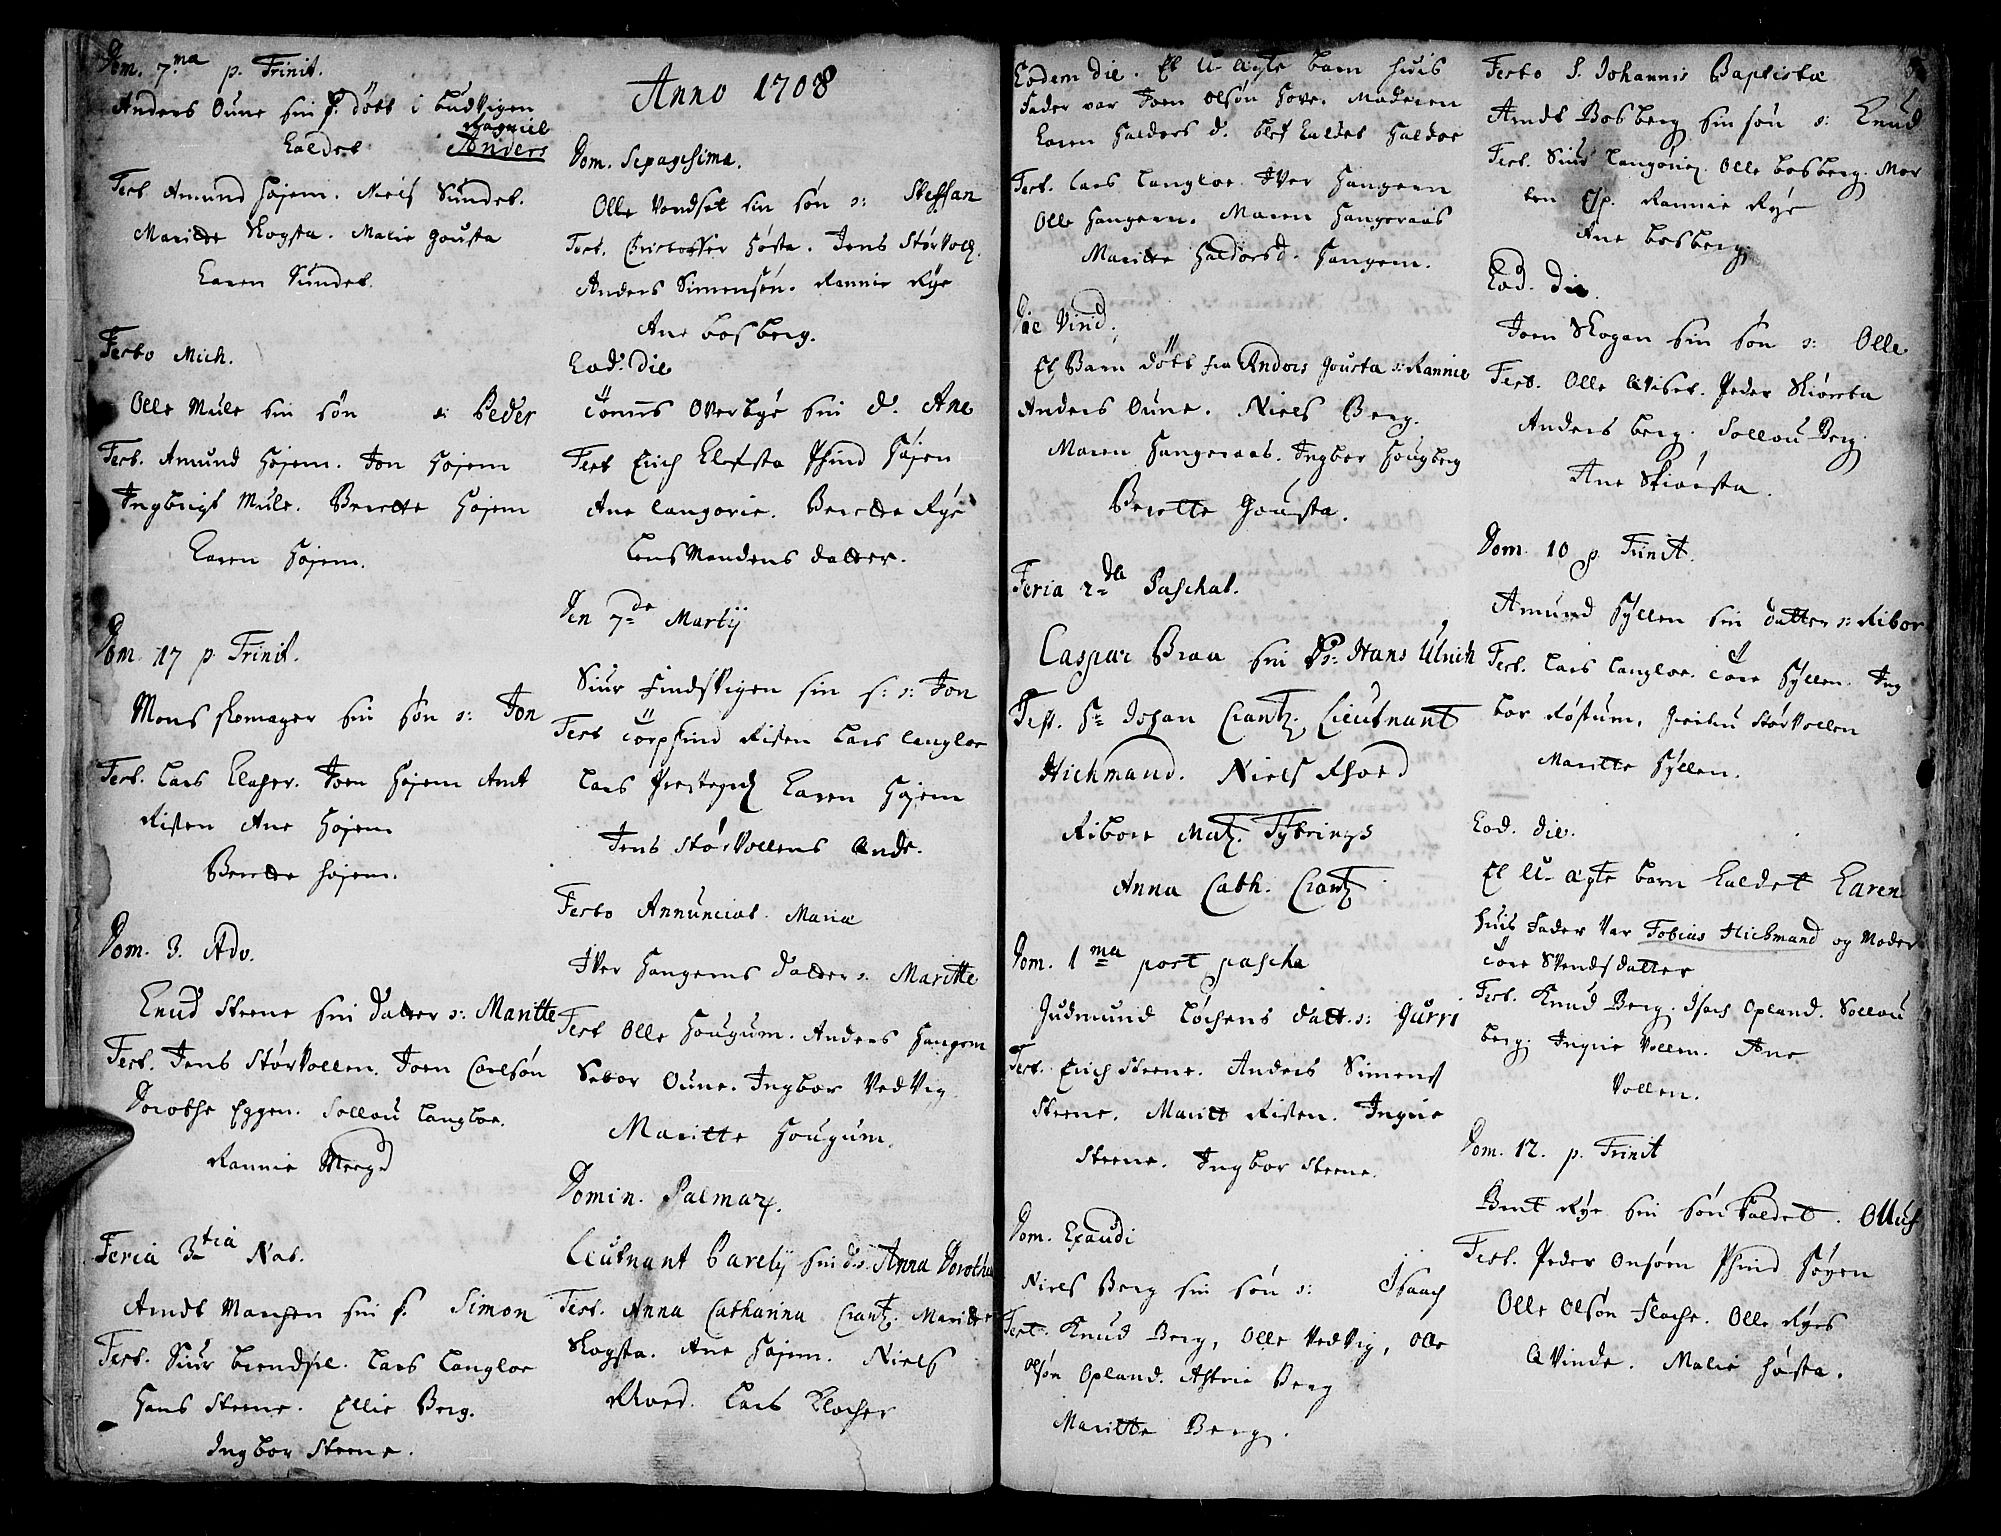 Dom. 7.ma p. Trinit.
Anders Oune sin s. döbt i
Ragnild
kaldet Anders
Test. Amund Højem. Niels Sundet.
Maritte Skogsta. Malie Gousta
Karen Sundet.
Festo Mich.
Olle Mule sin søn n: Peder
Test. Amund Højem. Jon Højem
Ingbrigt Mule. Beritte Højem
Karen Højem.
Dom. 17 p Trinit.
Mons skomager sin søn n: Jon
Test. Lars Klocher. Joen Højem Arnt
Risten Ane Højem
Beritte Højem.
Dom. 3. Adv.
Knud Steene sin datter n: Maritte
Test. Jens Størvollen. Joen Carlsøn
Dorothe Eggen. Sollou Langloe.
Rannie
Feria 3tia Nat.
Arndt Manshen sin s. Simon
Test. Siur Lars Langloe
Hans Steene. Ellie Berg.
Ingbor Steene.
Anno 1708
Dom. Sepagesima.
Olle Vendset sin søn n: Steffan
Test. Christoffer Høsta. Jens Størvoll.
Anders Simensøn. Rannie Rye
Ane bosberg.
Eod. die
Tomas Overbye sin d. Ane
Test Erich Elofsta Pfind Højen
Ane Langorie. Beritte Rye
Lensmandens datter.
Den 7de Martij
Siur Findsvigen sin s: n: Jon
Test Torpfind Risten Lars Langloe
Lars Karen Højem
Jens Størvollens Ande.
Festo Annunciat. Mariæ
Iver Hangems datter n: Maritte
Test Olle Hougum. Anders Hangem
Sebor Oune. Ingbor Vedvig.
Maritte Hougum.
Domin. Palmar.
Lieutnant Parelij sin d n: Anna Dorothea
Test. Anna Catharina Crantz. Maritte
Skogsta. Ane Højem. Niels
Rhoed. Lars Klocher
Eodem die. Et U-ægte barn huis
Fader var Joen Olsøn Hove. Moderen
Karen Haldors d. blef kaldet Haldor
Test. Lars Langloe. Iver Hangem
Olle Hangem. Maren Hangeraas
Maritte Haldorsd. Hangem.
Die Virid.
Et Barn döbt fra Andors Gousta n: Rannie
Anders Oune. Niels Berg.
Maren Hangeraas. Ingbor Hougberg
Beritte Gousta.
Feria 2da Paschat.
Caspar Braa sin S n: Hans Ulrich
Test. Hr Johan Crantz. Lieutnant
Hichmand. Niels Rhoed
Ribore Matz. Tybrings
Anna Cath. Crantz
Dom. 1ma post pascha
Gudmund Lochens datt. n: Gurri
Test. Erich Steene. Anders Simens
Steene. Maritt Risten. Ingrie
Steene. Ingbor Steene.
Dom. Exaudi
Niels Berg sin søn n: Isaach
Test. Knud Berg, Olle Vedvig, Olle
Olsøn Opland. Astrie Berg
Maritte Berg.
Festo S. Johannis Baptistæ
Arndt Bosberg sin søn n: Knud
Test. Siur Langorie. Olle bosberg. Mor
ten Esp. Rannie Rye
Ane bosberg.
Eod. die.
Joen Skogan sin søn n: Olle
Test. Olle Peder Skiørsta
Anders berg. Sollou Berg.
Ane Skiørsta.
Dom. 10 p Trinit.
Amund Hyllen sin datter n: Ribor
Test. Lars Langloe. Tore Hyllen. Ing
bor Røstum. Størvollen
Maritte Hyllen.
Eod. die.
Et U-ægte barn kaldet Karen
huis Fader var Tobias Hichmand og Moder
Tore Svends datter
Test. Knud Berg. Isach Opland. Sollou
berg. Ingrie Vollen. Ane
Vollen.
Dom. 12. p. Trinit
Bent Rye sin søn kaldet. Olluf
Test. Peder Onsøen Pfind Høyen
Olle Olsøn Flache. Olle Ryes
Qvinde. Malie Høsta.